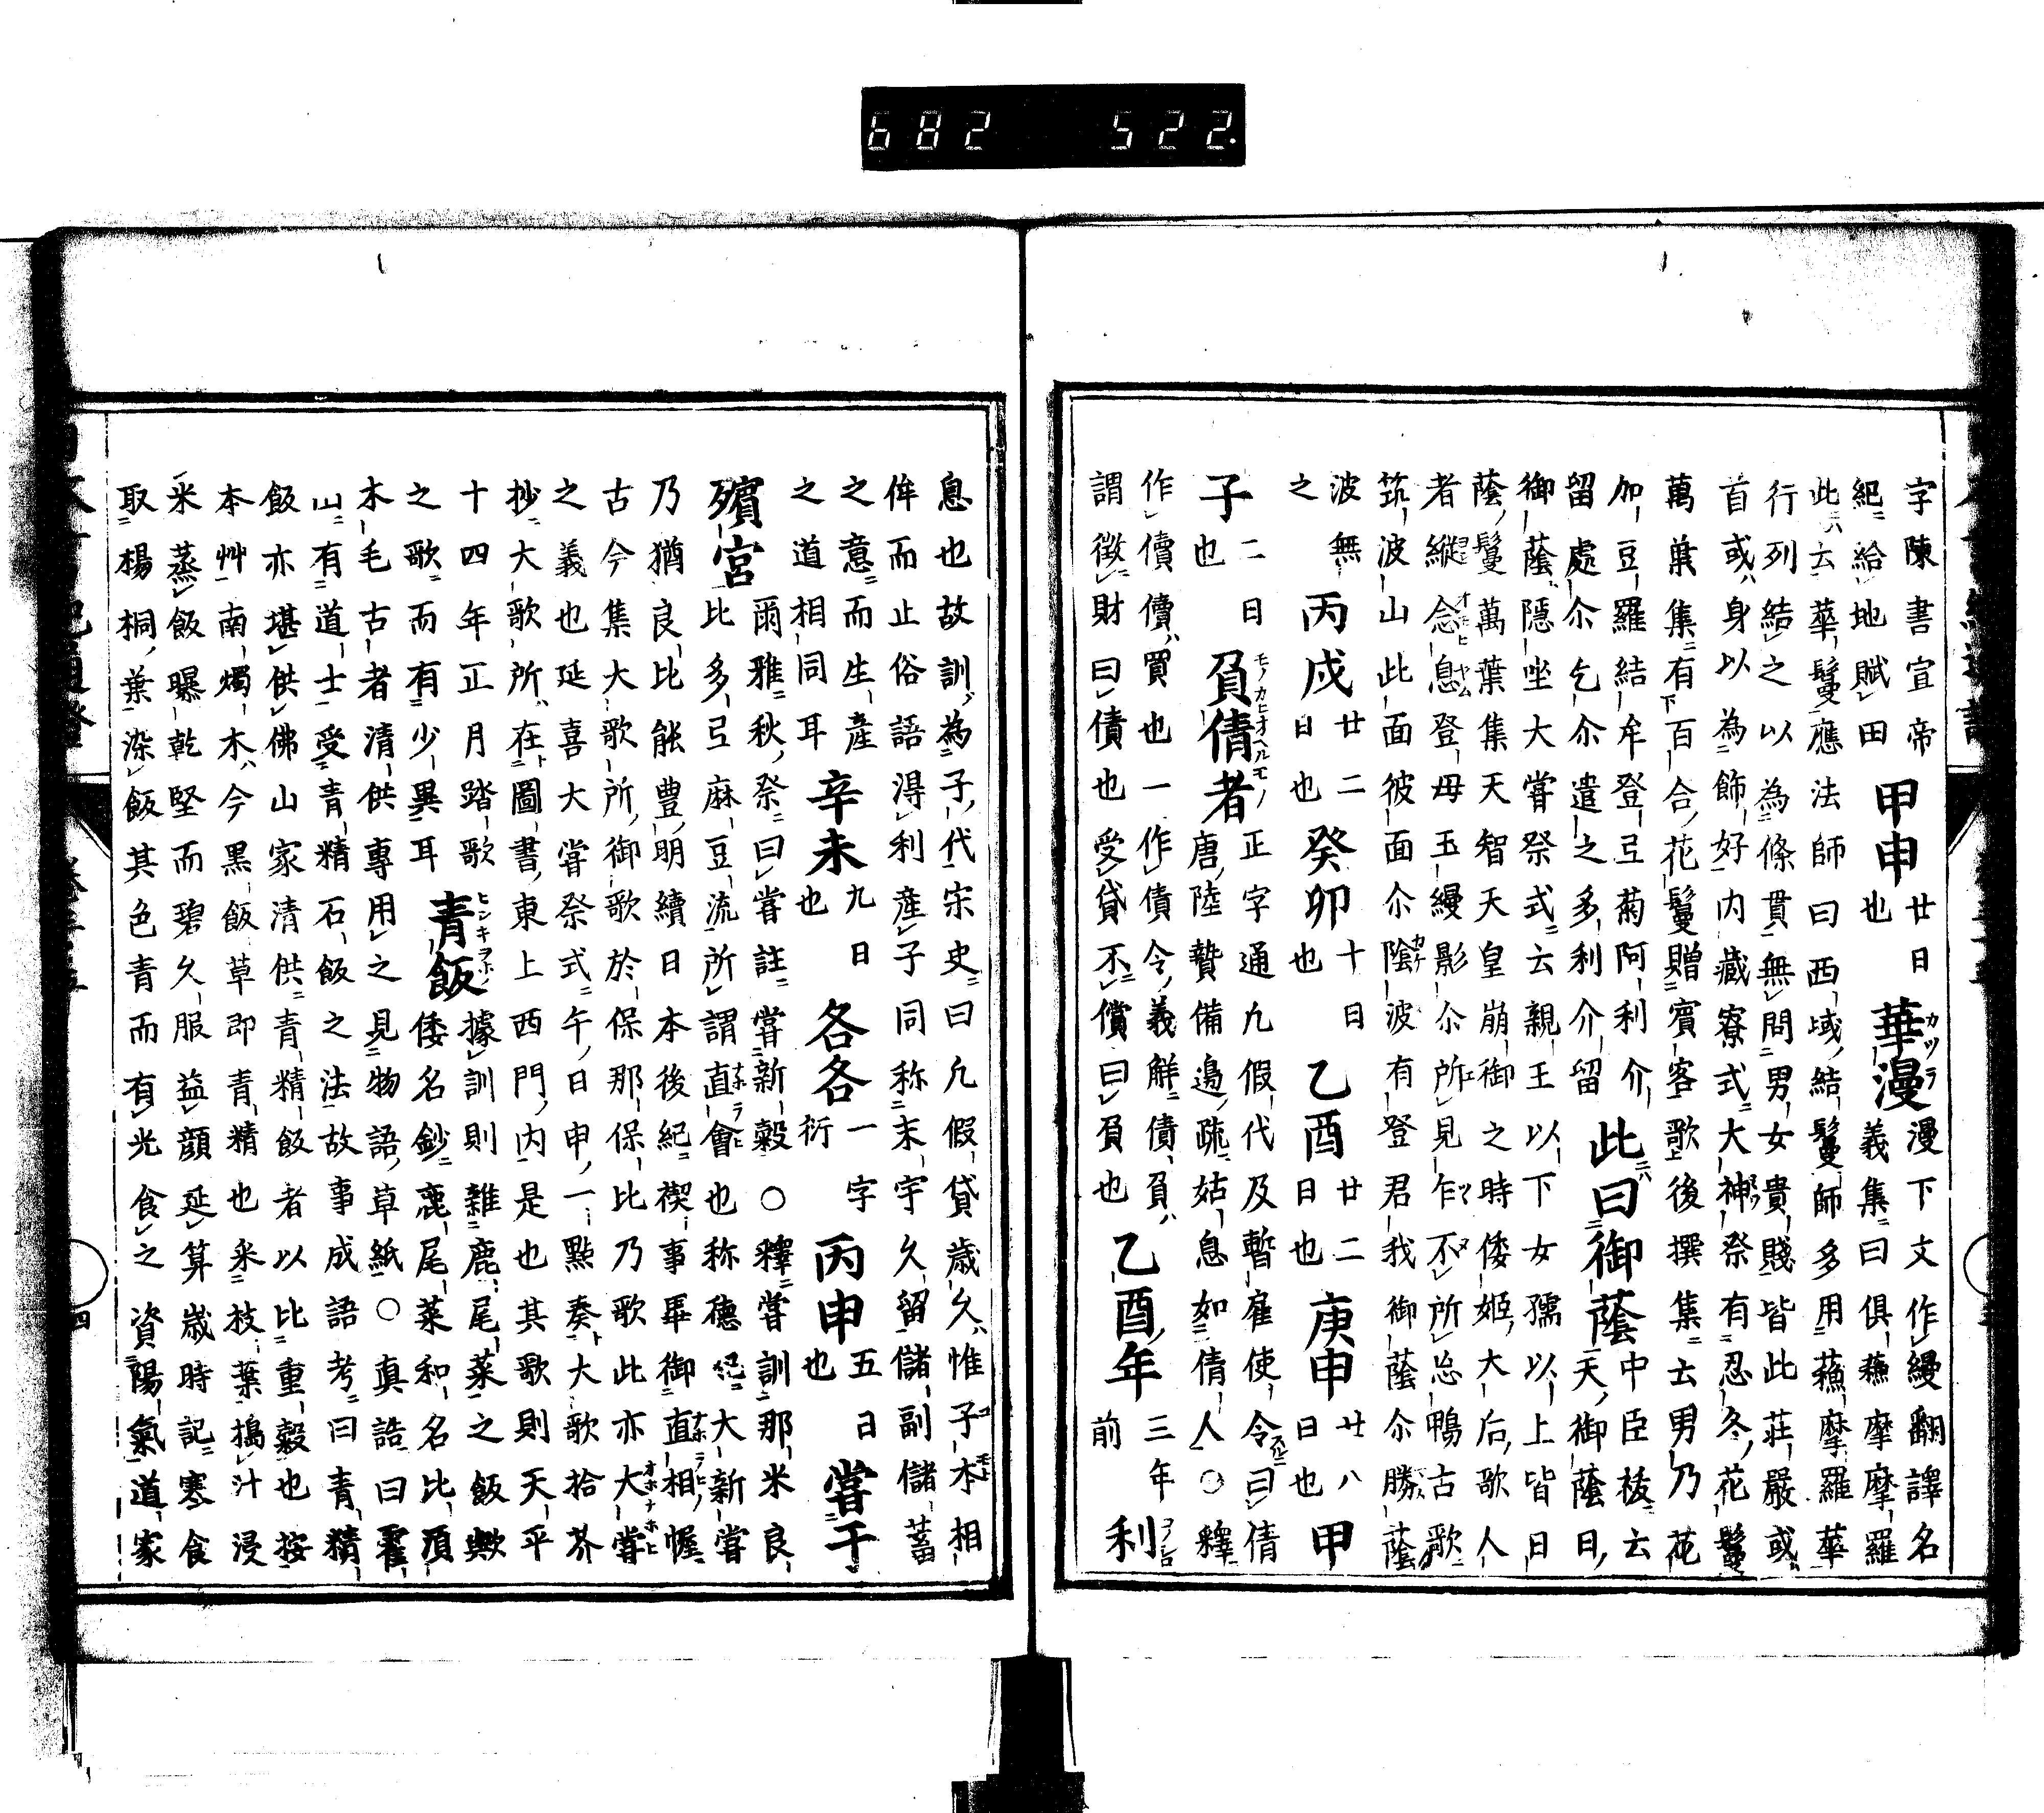 682 522.
字陳書宣帝
紀給地賦田
甲申
廿日
也
華漫
カツラ
漫下文作縵翻譯名
義集曰俱蘓摩摩羅
此云華鬘應法師曰西域結鬘師多用蘓摩羅華
行列結之以為條貫無問男女貴賤皆此莊嚴或
首或身以為飾好内蔵寮式大神祭有忍冬花鬘
萬葉集有百合花鬘贈賓客歌後撰集云男乃花
加豆羅結牟登弖菊阿利介
留處尓乞尓遣之多利介留
此曰御蔭
中臣祓云
天御蔭日
御蔭隠坐大嘗祭式云親王以下女孺以上皆日
蔭鬘萬葉集天智天皇崩御之時倭姬大后歌人
者縱念息登母玉縵影尓所見乍不所忘鴨古歌
筑波山此面彼面尓蔭波有登君我御蔭尓勝蔭
波無
之
丙戌
廿二
日也
癸卯
十日
也
乙酉
廿二
日也
庚申
廿八
日也
甲
子
二日
也
負債者
モノカヒオヘルモノ
正字通凢假代及暫雇使令曰倩
唐陸贄備邊疏姑息如倩人○釋
作債償買也一作債令義解債負
謂徵財曰債也受貸不償曰負也
乙酉年
三年
前
利
息也故訓為子代宋史曰凢假貸歳久惟子本相
侔而止俗語淂利産子同称末宇久留儲副儲蓄
之意而生産
之道相同耳
辛未
九日
也
各各
一字
衍
丙申
五日
也
嘗于
殯宮
爾雅秋祭曰嘗註嘗新穀○釋嘗訓那米良
比多弖麻豆流所謂直會也称德紀大新嘗
乃猶良比能豊明續日本後紀禊事畢御直相幄
古今集大歌所御歌於保那保比乃歌此亦大嘗
之義也延喜大嘗祭式午日申一點奏大歌拾芥
抄大歌所在圖書東上西門内是也其歌則天平
十四年正月踏歌
之歌而有少異耳
青飯
ヒンキヲホノ
據訓則雜鹿尾菜之飯歟
倭名鈔鹿尾菜和名比須
木毛古者清供專用之見物語草紙○真誥曰霍
山有道士受青精石飯之法故事成語考曰青精
飯亦堪供佛山家清供青精飯者以比重穀也按
本艸南燭木今黒飯草即青精也釆枝葉搗汁浸
米蒸飯曝乾堅而碧久服益顔延算歳時記寒食
取楊桐葉染飯其色青而有光食之資陽氣道家